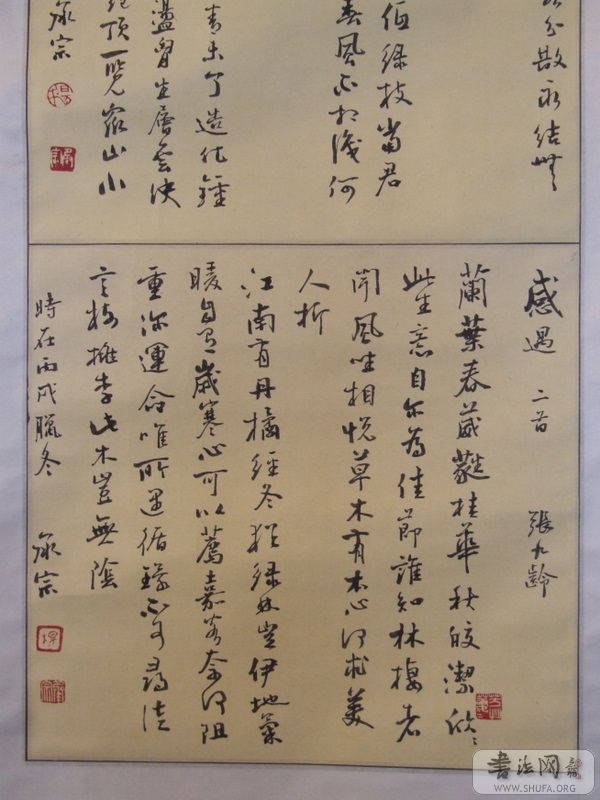 分散永結無
低綠枝當君
春風不相識何
青未了造化鍾
盪胸生層雲決
絕頂一覽眾山小
承宗
感遇 二首 張九齡
蘭葉春葳蕤桂華秋皎潔欣〻
此生意自尔為佳節誰知林棲者
聞風坐相悅草木有本心何求美
人折
江南有丹橘經冬猶綠林豈伊地氣
暖自有歲寒心可以薦嘉客奈何阻
重深運命唯所遇循環不可尋徒
言樹桃李此木豈無陰
時在丙戌臘冬 承宗
書法网
WWW.SHUFA.ORG